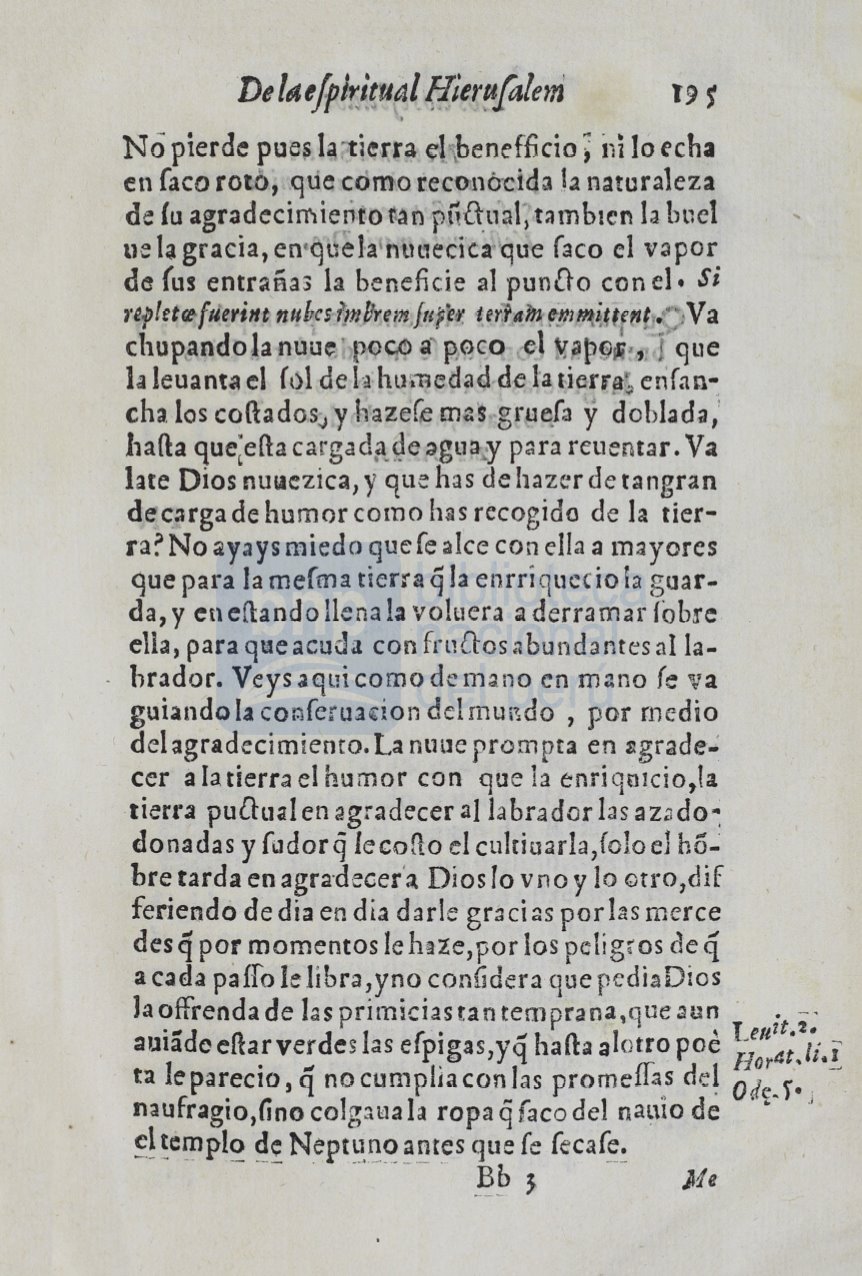 De la eſpiritual Hieruſalem 195
No pierde pues la tierra el benefficio, ni lo echa
en ſaco roto, que como reconocida la naturaleza
de ſu agradecimiento tan pũctual, tambien la buel
ue la gracia, en que la nuuecica que ſaco el vapor
de ſus entrañas la beneficie al puncto con el. Si
repletæ fuerint nubes imbrem ſuper terram emmittent. Va
chupando la nuue poco a poco el vapor, que
la leuanta el ſol de la humedad de la tierra, enſan-
cha los coſtados, y hazeſe mas grueſa y doblada,
haſta que eſta cargada de agua y para reuentar. Va
late Dios nuuezica, y que has de hazer de tan gran
de carga de humor como has recogido de la tier-
ra? No ayays miedo que ſe alce con ella a mayores
que para la meſma tierra q̃ la enrriquecio la guar-
da, y en eſtando llena la voluera a derramar ſobre
ella, para que acuda con fructos abundantes al la-
brador. Veys aqui como de mano en mano ſe va
guiando la conſeruacion del mundo, por medio
del agradecimiento. La nuue prompta en agrade-
cer a la tierra el humor con que la enriquicio, la
tierra puctual en agradecer al labrador las azado-
donadas y ſudor q̃ le coſto el cultiuarla, ſolo el hõ-
bre tarda en agradecer a Dios lo vno y lo otro, dif
feriendo de dia en dia darle gracias por las merce
des q̃ por momentos le haze, por los peligros de q̃
a cada paſſo le libra, y no conſidera que pedia Dios
la offrenda de las primicias tan temprana, que aun
auiãde eſtar verdes las eſpigas, y q̃ haſta al otro poë
ta le parecio, q̃ no cumplia con las promeſſas del
naufragio, ſino colgaua la ropa q̃ ſaco del nauio de
el templo de Neptuno antes que ſe ſecaſe.
Leuit. 2.
Horat. li. 1
Ode. 5.
Bb 3 Me